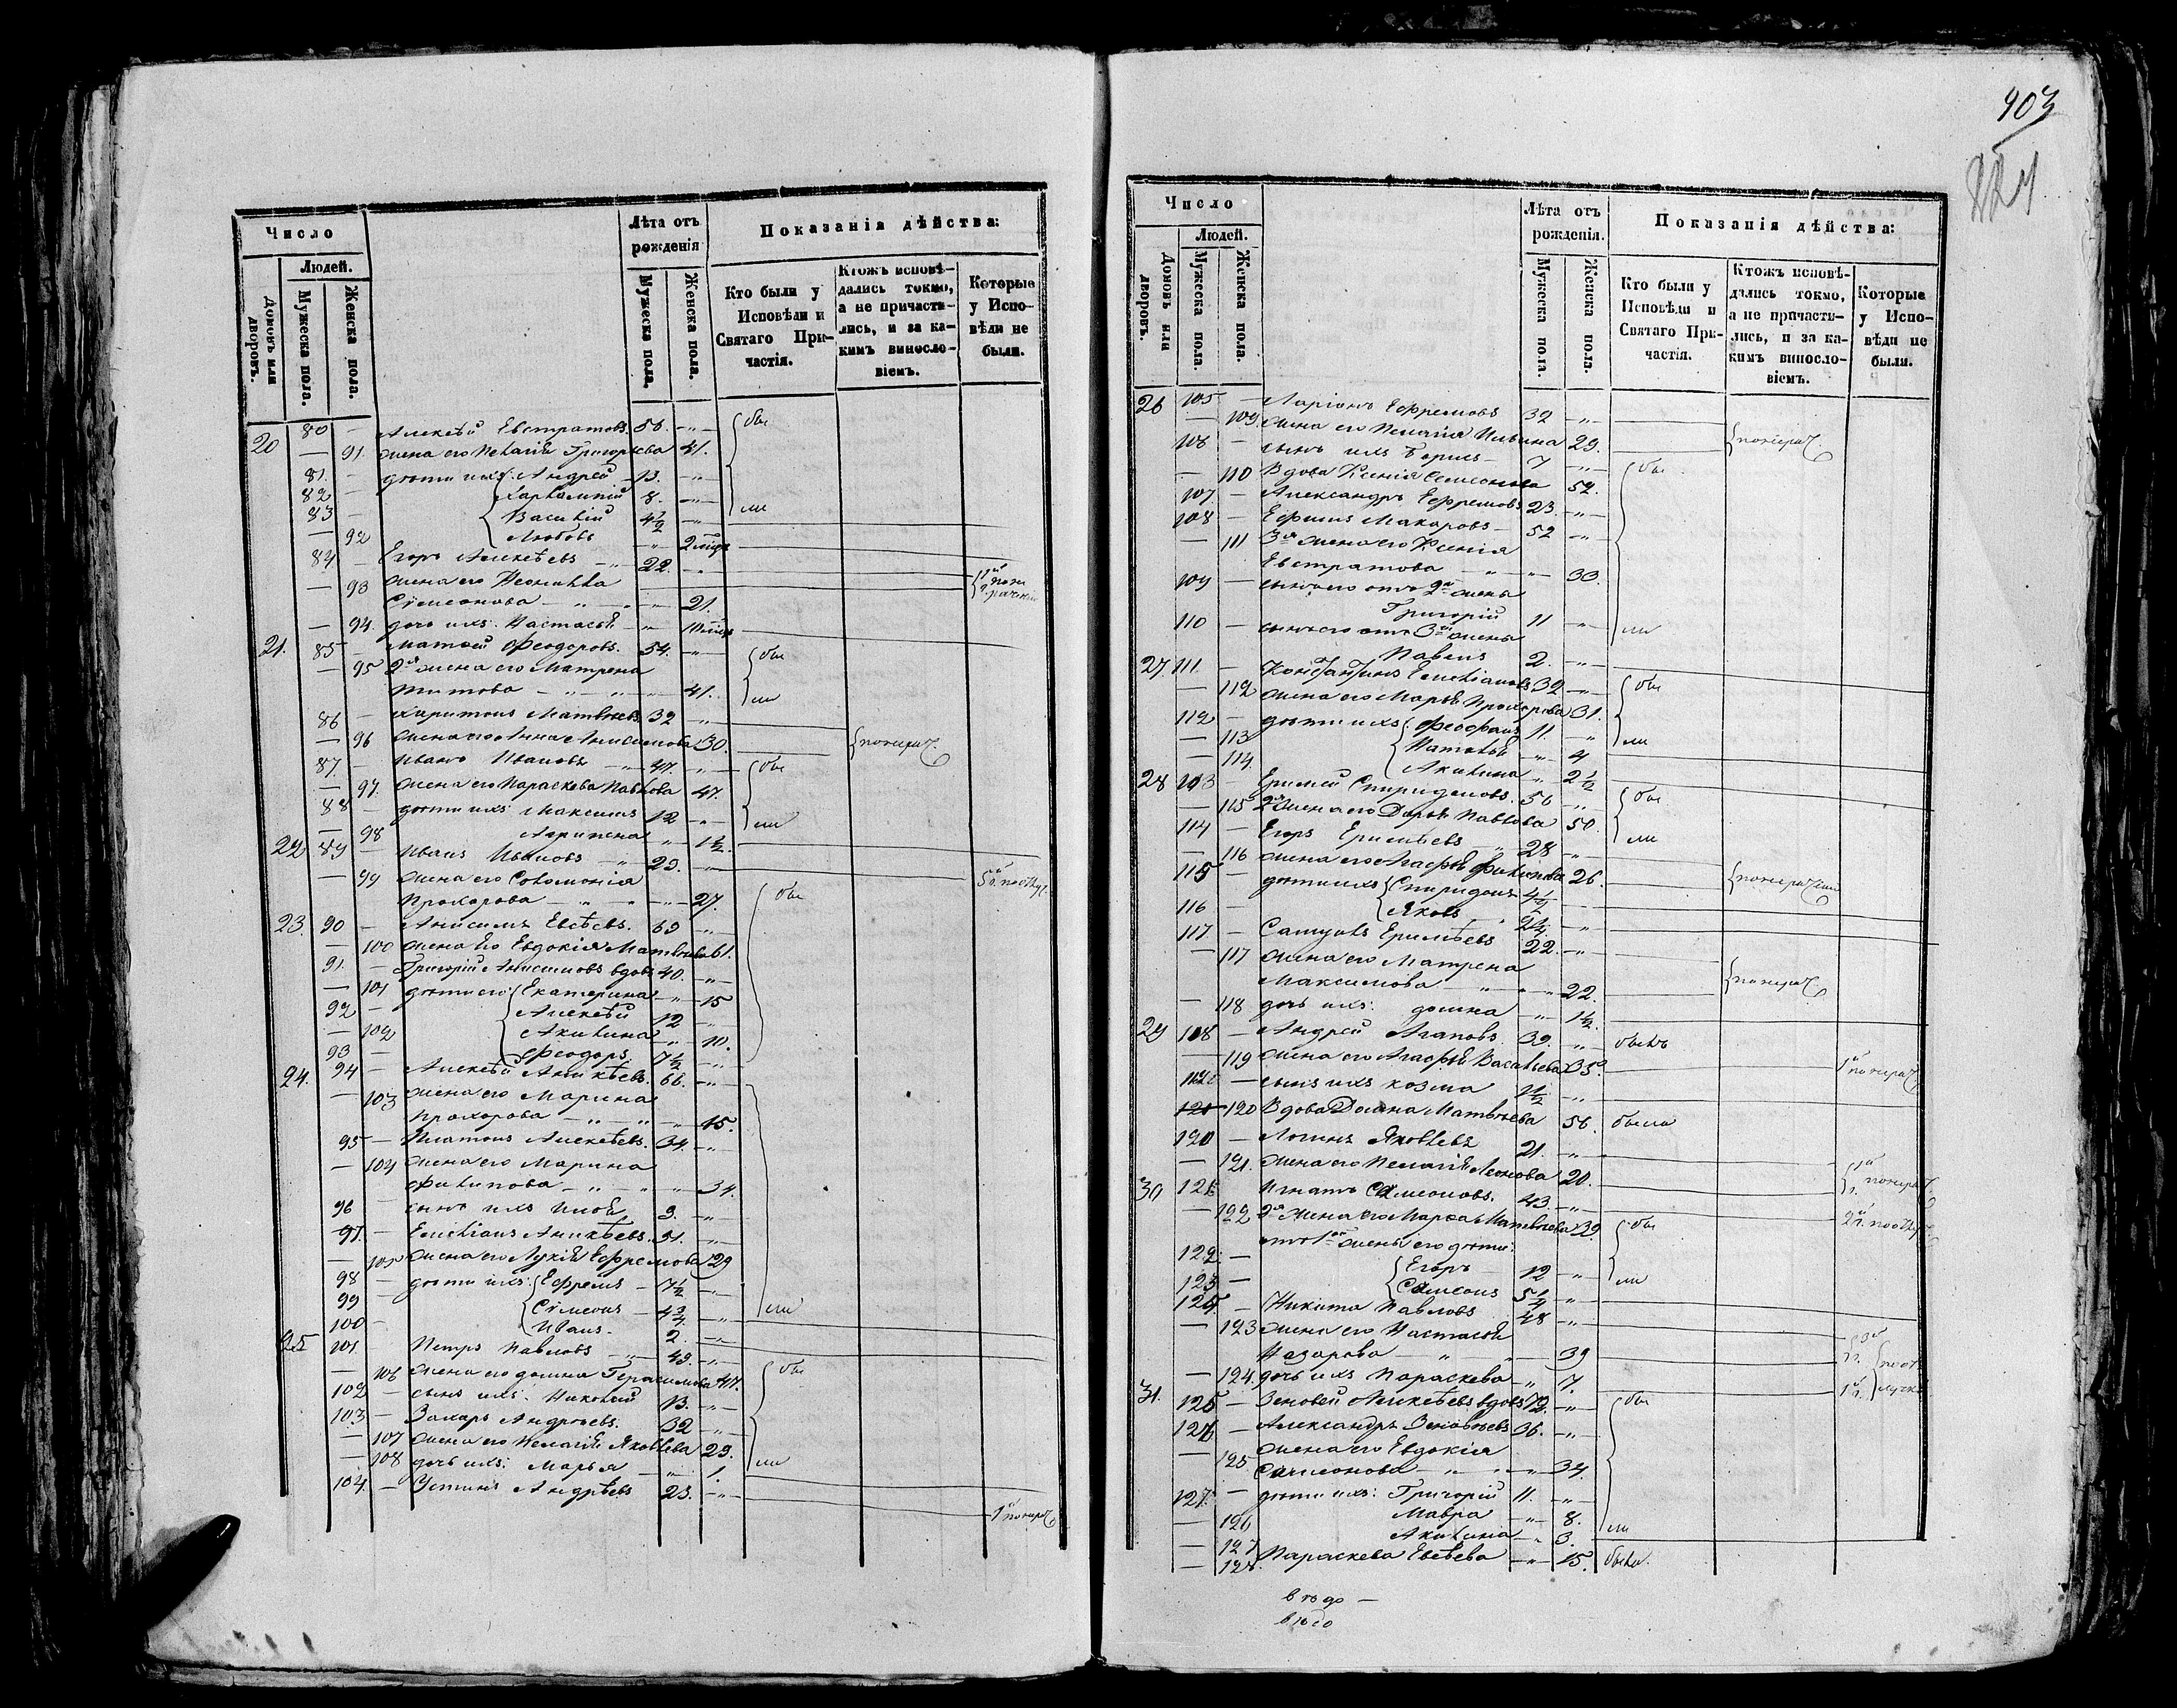 903
Число
Людей.
Домовъ или дворовъ.
Мужеска пола.
Женска пола.
Лѣта отъ рожденія
Мужеска пола.
Женска пола.
Показанія дѣйства:
Кто были у Исповѣди и Святаго Причастія.
Ктожъ исповѣдались токмо, а не причастились, и за какимъ винословіемъ.
Которые у Исповѣди не были.
20 80 — Алексѣй Евстратовъ. 56. —„— бы
— 91. жена его Пелагія Григорьева 41.
81. — дѣти ихъ: Андрей 13. —„—
82 — Харлампій 8. —„—
83 — Василій 4½ —„— ли
— 92 Любовь —„— 2
84 — Егоръ Алексѣевъ 22. „
— 93 жена его Неонилла
Сѵмеонова — „ — „ — 21.
— 94. дочь ихъ: Настасья „
21. 85 — Матѳей Феодоровъ. 54. —„— бы
— 95 2я жена его Матрена
Титова — „ — „ — 41. ли
86 — Харитонъ Матвѣевъ 32 —„—
— 96 жена его Анна Анисимова 30.
87. — Иванъ Ивановъ 47. —„— бы
— 97. жена его Параскева Павлова 47.
88 дѣти ихъ: Максимъ 12 —„— ли
— 98 Агрипена „ 1½.
22 89 — Иванъ Ивановъ 29. —„—
— 99 жена его Соломонія
Прохорова — „ — 27. бы
23. 90 — Анисимъ Евсѣевъ. 69 —„—
— 100 жена его Евдокія Матвѣева 61.
91. — Григорій Анисимовъ вдовъ 40. —„—
— 101 дѣти его: Екатерина —„— 15
92 — Алексѣй 12 —„—
— 102 Акилина —„— 10.
93 — Феодоръ. 7½ —„—
24. 94 — Алексѣй Аникѣевъ. 66. —„—
— 103 жена его Марина
Прохорова — „ — „ — 45.
95 — Платонъ Алексѣевъ. 34. —„—
— 104 жена его Марина
Филипова — „ — „ — 34.
96 — сынъ ихъ Илья 9. —„—
97. — Емеліанъ Аникѣевъ. 31. —„—
— 105 жена его Лукія Ефремова 29
98 — дѣти ихъ: Ефремъ 7½ —„—
99 Сѵмеонъ 4¾ —„— ли
100 — Иванъ. 2. —„—
25 101 Петръ Павловъ 49. —„—
— 106 жена его домна Герасимова 47. бы
102 — сынъ ихъ: Николай 13. —„—
103 — Захаръ Андреевъ. 32 —„—
— 107 жена его Пелагія Яковлева 29.
— 108 дочь ихъ: Марья —„— 1. ли
104. — Устинъ Андрѣевъ 23. —„—
Число
Людей.
Домовъ или дворовъ.
Мужеска пола.
Женска пола.
Лѣта отъ рожденія.
Мужеска пола.
Женска пола.
Показанія дѣйства:
Кто были у Исповѣди и Святаго Причастія.
Ктожъ исповѣдались токмо, а не причастились, и за какимъ винословіемъ.
Которые у Исповѣди не были.
26 105 — Ларіонъ Ефремовъ 32 —„—
— 109. жена его Пелагія Ильина 29.
106 — сынъ ихъ Борисъ 7 —„—
— 110 Вдова Ксенія Семеонова 52. бы
107 — Александръ Ефремовъ 23. —„—
108 — Ефимъ Макаровъ 52 —„—
— 111 3я жена его Ксенія
Евстратова — „ — „ — 33.
109 — сынъ его отъ 2й жены
Григорій 11 —„— ли
110 — сынъ его отъ 3й жены
Павелъ 2. —„—
27. 111 — Константинъ Емеліановъ 32 —„— бы
— 112 жена его Марья Прохорова 31.
112 — дѣти ихъ: Феофанъ 11. —„— ли
— 113 Наталья —„— 4
— 114. Акилина „ 2½
28 113 — Еримей Спиридоновъ. 56 —„— бы
— 115 2я жена его Дарья Павлова 50.
114 — Егоръ Еримѣевъ 28 —„— ли
— 116 жена его Агафья Филипова 26.
115 — дѣти ихъ: Спиридонъ 4½
116 — Яковъ 2¼ —„—
117 — Самуилъ Еримѣевъ 22. —„—
— 117 жена его Матрена
Максимова — „ — 22.
— 118 дочь ихъ: домна —„— 1½.
29 108 — Андрей Агаповъ. 39. —„— былъ
— 119 жена его Агафья Васильева 35.
— сынъ ихъ козма 1½ —„—
120 Вдова Домна Матвѣева 56. была
120 — Логинъ Яковлевъ 21. —„—
— 121. жена его Пелагія Леонова 20.
30 121 Игнатъ Самсоновъ. 43. —„—
— 122 2я жена его Марѳа Матвѣева 39. бы
отъ 1й жены его дѣти:
122. — Егоръ 12 —„— ли
123 — Самсонъ 5¼ —„—
124 — Никита Павловъ 48 —„—
— 123 жена его Настасья
Назарова — „ — 39
— 124. дочь ихъ Параскева —„— 7.
31. 125 — Зеновей Алексѣевъ вдовъ 72. —„— бы
126 — Александръ Зеновьевъ 36. —„—
— 125. жена его Евдокія
Самсонова — „ — 34.
127. — дѣти ихъ: Григорій 11. —„—
— 126 Мавра —„— 8. ли
— 127 Акилина —„— 3.
— 128. Параскева Евсѣева —„— 15. была.